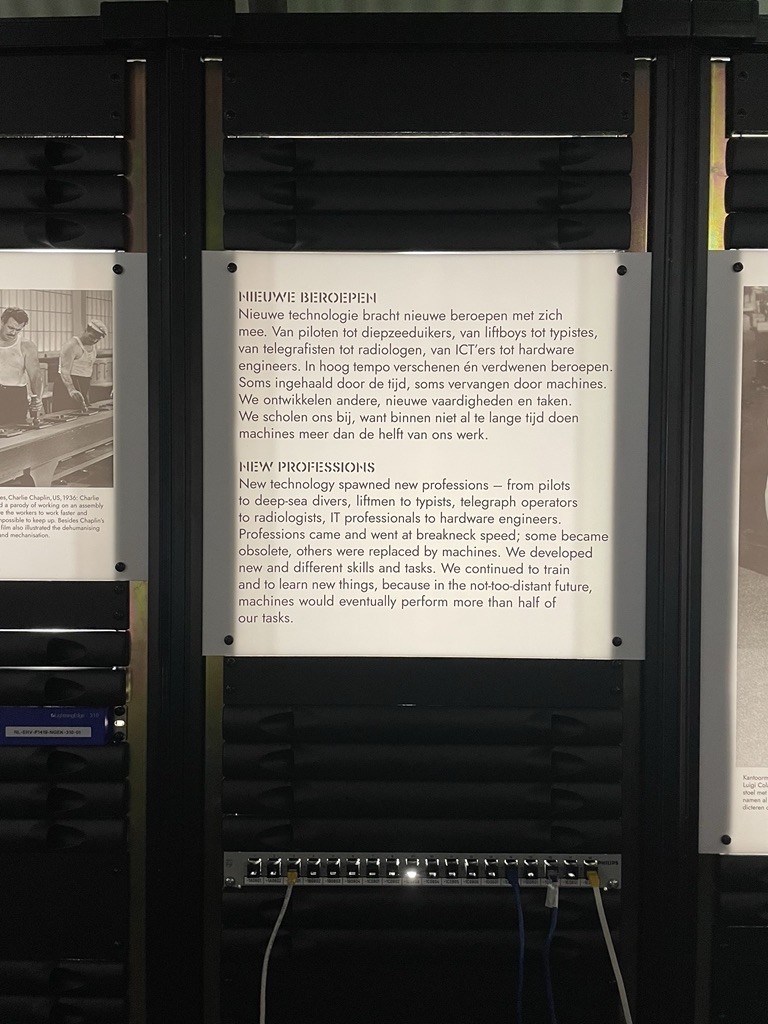 NIEUWE BEROEPEN
Nieuwe technologie bracht nieuwe beroepen met zich
mee. Van piloten tot diepzeeduikers, van liftboys tot typistes,
van telegrafisten tot radiologen, van ICT'ers tot hardware
engineers. In hoog tempo verschenen én verdwenen beroepen.
Soms ingehaald door de tijd, soms vervangen door machines.
We ontwikkelen andere, nieuwe vaardigheden en taken.
We scholen ons bij, want binnen niet al te lange tijd doen
machines meer dan de helft van ons werk.
NEW PROFESSIONS
New technology spawned new professions – from pilots
to deep-sea divers, liftmen to typists, telegraph operators
to radiologists, IT professionals to hardware engineers.
Professions came and went at breakneck speed; some became
obsolete, others were replaced by machines. We developed
new and different skills and tasks. We continued to train
and to learn new things, because in the not-too-distant future,
machines would eventually perform more than half of
our tasks.
es, Charlie Chaplin, US, 1936; Charlie
d a parody of working on an assembly
e the workers to work faster and
mpossible to keep up. Besides Chaplin's
film also illustrated the dehumanising
and mechanisation.
Luigi Col
stoel met
namen al
dicteren
PHILIPS